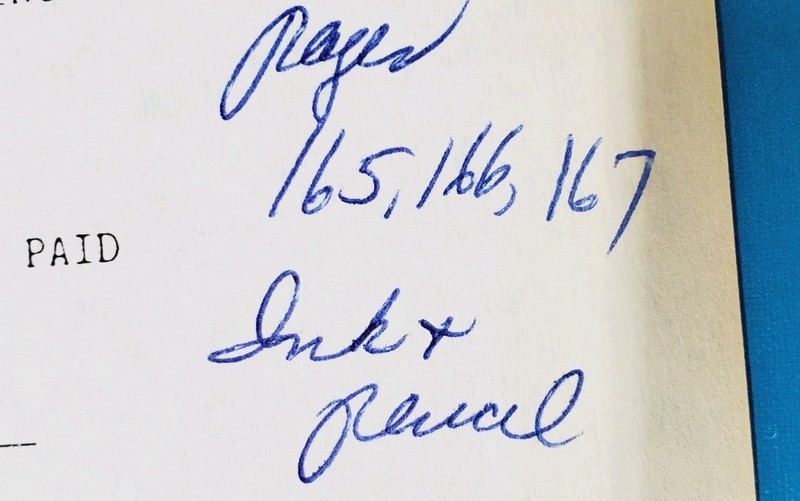 pages
165, 166, 167
PAID
Ink +
pencil